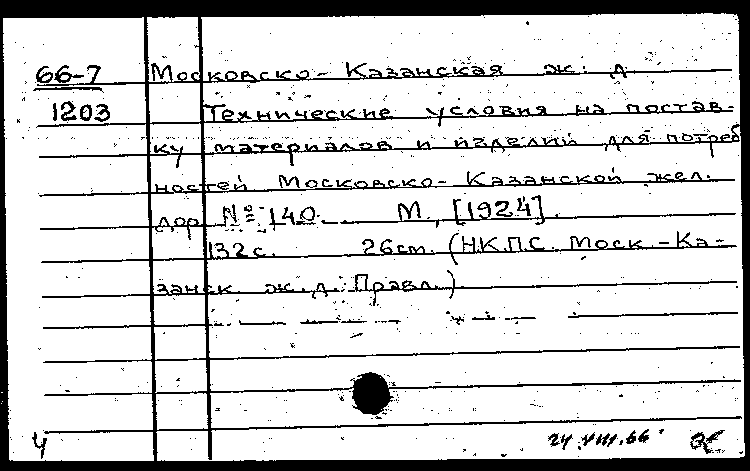 66-7 Московско-Казанская ж. д.
1203 Технические условия на постав-
ку материалов и изделий для потреб
ностей Московско-Казанской жел.
дор. № 140. М., [1924].
132 с. 26 см. (Н.К.П.С. Моск.-Ка-
занск. ж.д. Правл.)
4 24.VIII.66